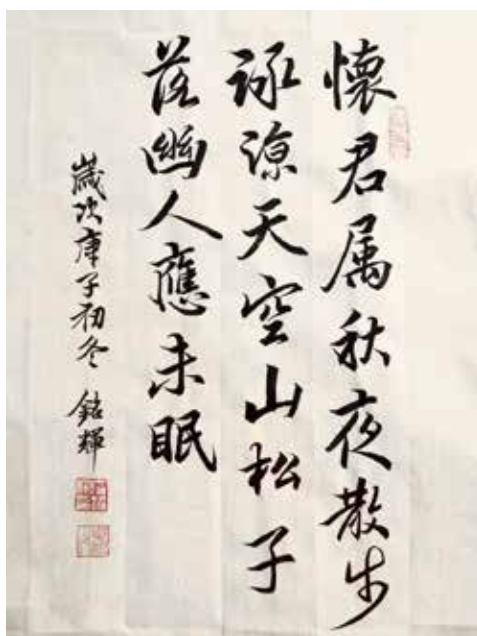 懷君属秋夜散步
詠涼天空山松子
落幽人應未眠
歲次庚子初冬 銘輝